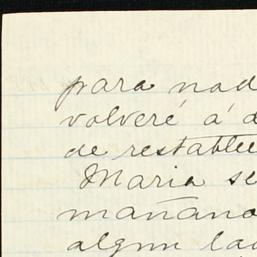 para nad
volveré á d
de restable
Maria se
mañana
algun lad